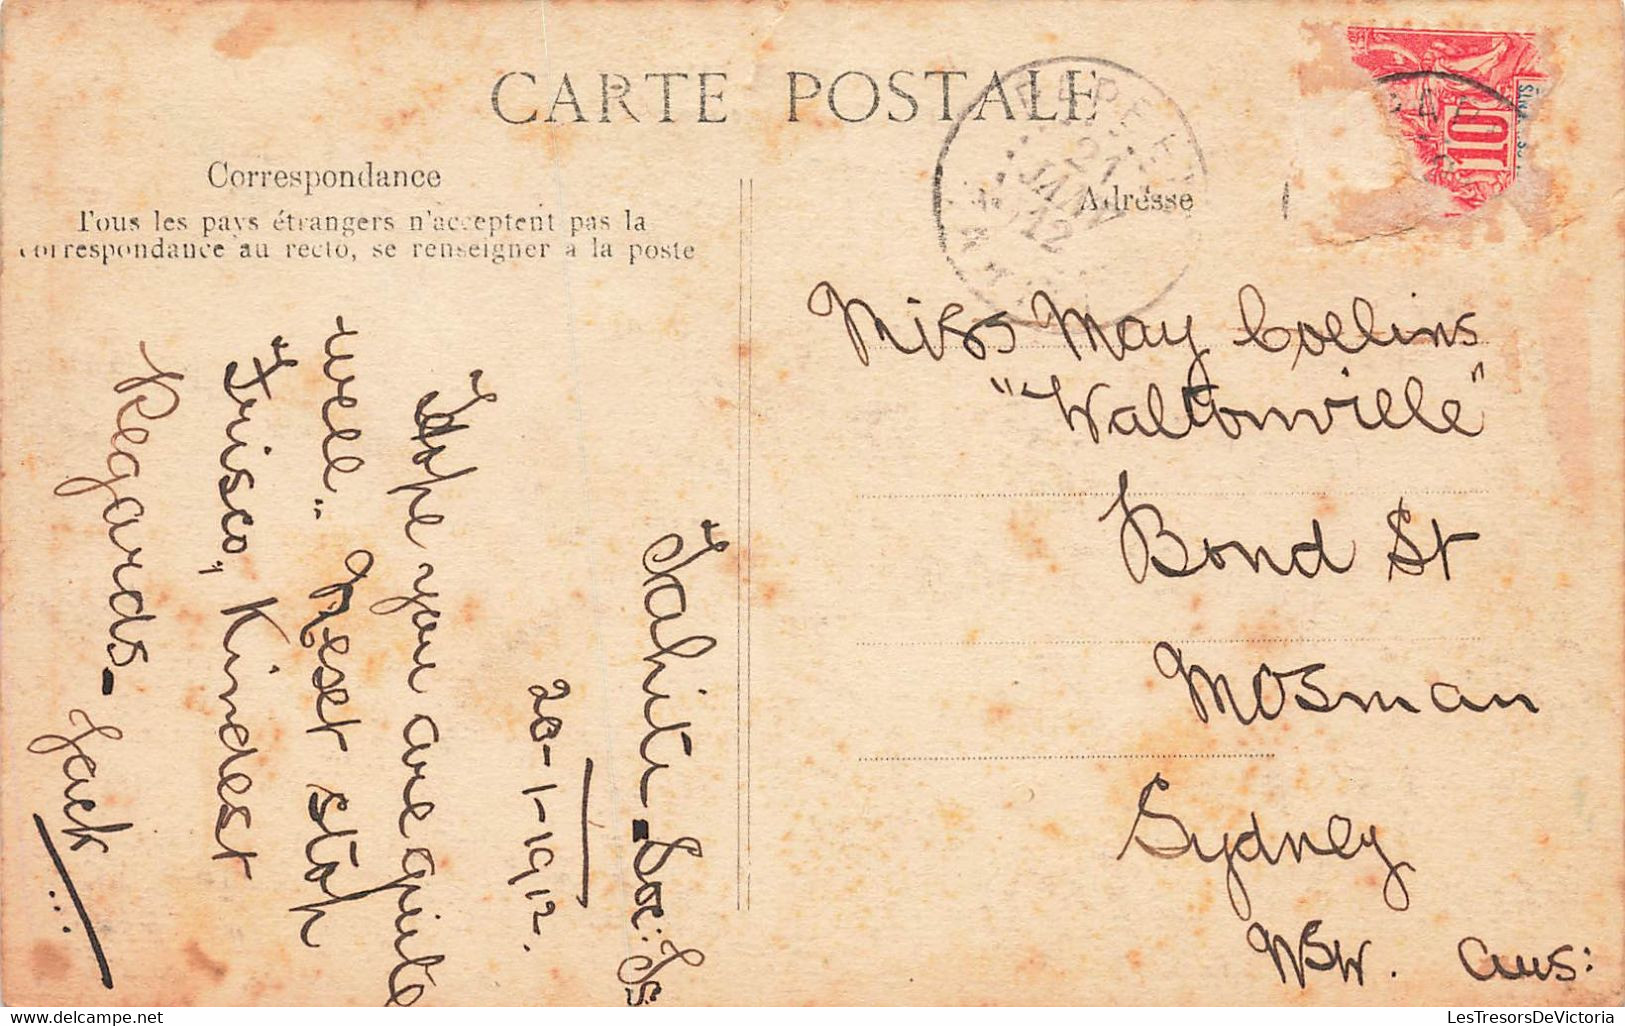 CARTE POSTALE
Correspondance
Tous les pays étrangers n'acceptent pas la
correspondance au recto, se renseigner à la poste
Adresse
PAPEETE
21
JANV
12
TAHITI
10
Tahiti - Soc: Is
20-1-1912.
Hope you are quite
well.. Next stop
Frisco, Kindest
Regards - Jack ...
Miss May Collins
"Waltonville"
Bond St
Mosman
Sydney
NSW. Aus:
LesTresorsDeVictoria.com